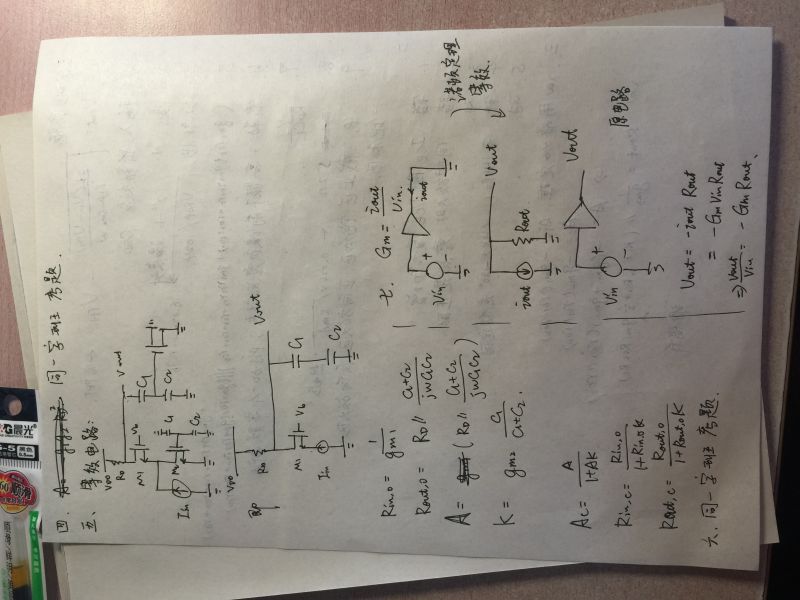 四. 同一字班考题.
五、等效电路:
VDD
RD
Vout
M1
Vb
C1
C2
M2
C1
C2
Iin
即
VDD
RD
Vout
M1
Vb
C1
C2
Iin
Rin,0 = 1/gm1
Rout,0 = RD // (C1+C2)/(jωC1C2)
A = (RD // (C1+C2)/(jωC1C2))
K = gm2 C1/(C1+C2).
Ac = A/(1+AK)
Rin,c = Rin,0/(1+Rin,0K)
Rout,c = Rout,0/(1+Rout,0K)
六. 同一字班考题.
七. Gm = iout/Vin.
Vin
+
-
iout
诺顿定理
等效.
Vout
iout
Rout
Vout
Vin
+
-
原电路
Vout = -iout Rout
= -Gm Vin Rout
⇒ Vout/Vin = -Gm Rout.
晨光